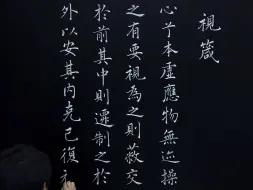 視箴
心兮本虛應物無迹操
之有要視為之則蔽交
於前其中則遷制之於
外以安其內克己復